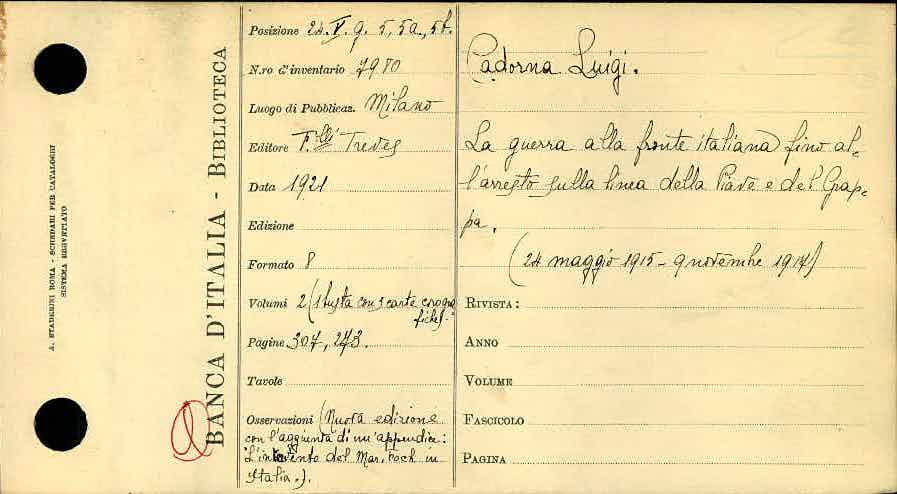 A. STADERINI ROMA - SCHEDARI PER CATALOGHI
SISTEMA BREVETTATO
BANCA D'ITALIA - BIBLIOTECA
Posizione 24. V. g. 5, 5a, 5b.
N.ro d'inventario 7980
Luogo di Pubblicaz. Milano
Editore F.lli Treves
Data 1921
Edizione
Formato 8
Volumi 2 (1 busta con 3 carte corogra
fiche).
Pagine 307, 273.
Tavole
Osservazioni (Nuova edizione
con l'aggiunta di un'appendice:
L'intervento del Mar. Foch in
Italia.).
Cadorna Luigi.
La guerra alla fronte italiana fino al-
l'arresto sulla linea della Piave e del Grap-
pa.
(24 maggio 1915 - 9 novembre 1917)
RIVISTA:
ANNO
VOLUME
FASCICOLO
PAGINA